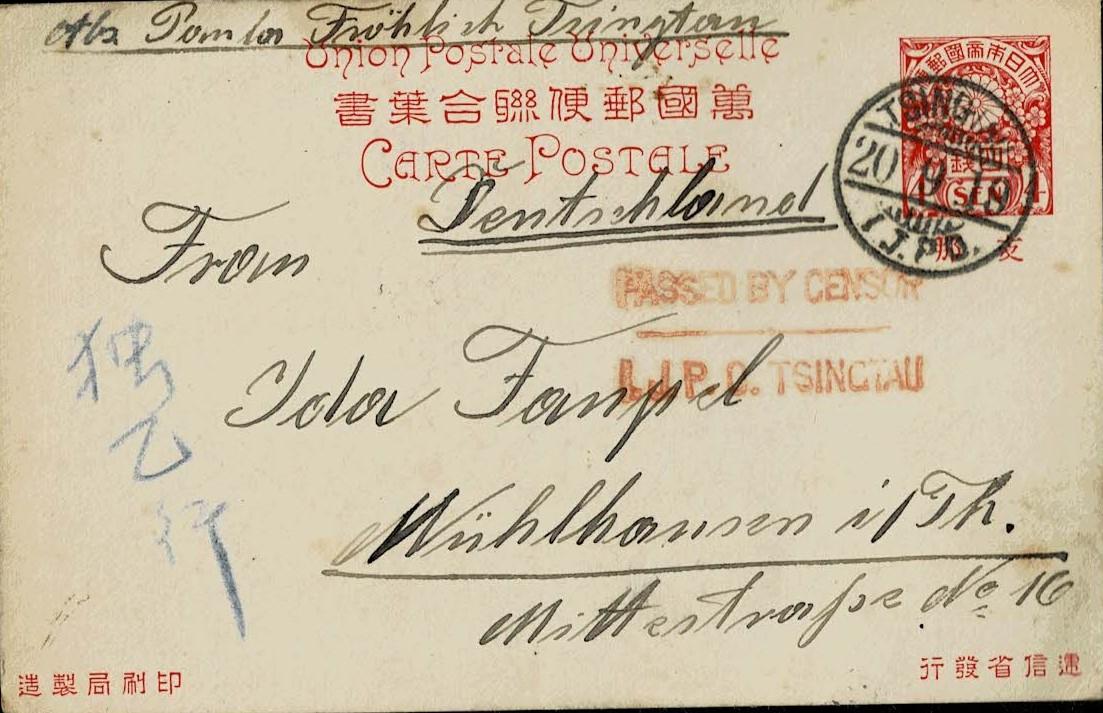 Abs Paula Fröhlich Tsingtau
Union Postale Universelle
書葉合聯便郵國萬
CARTE POSTALE
大日本帝國郵便
4 SEN
四錢
支那
TSINGTAU
20 9 19
I.J.P.O.
Deutschland
Frau
PASSED BY CENSOR
I.J.P.O. TSINGTAU
Ida Fanpel
Mühlhausen i/Th.
Mittestraße No 16
独乙行
造製局刷印
行發省信遞